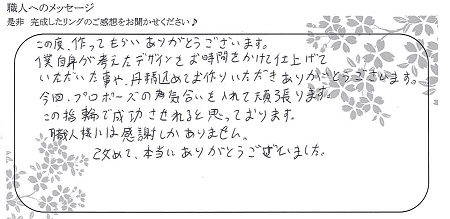 職人へのメッセージ
是非 完成したリングのご感想をお聞かせください♪
この度、作ってもらいありがとうございます。
僕自身が考えたデザインをお時間をかけて仕上げて
いただいた事や、丹精込めてお作りいただきありがとうございます。
今回、プロポーズの為気合いを入れて頑張ります。
この指輪で成功させれると思っております。
職人様には感謝しかありません。
改めて、本当にありがとうございました。